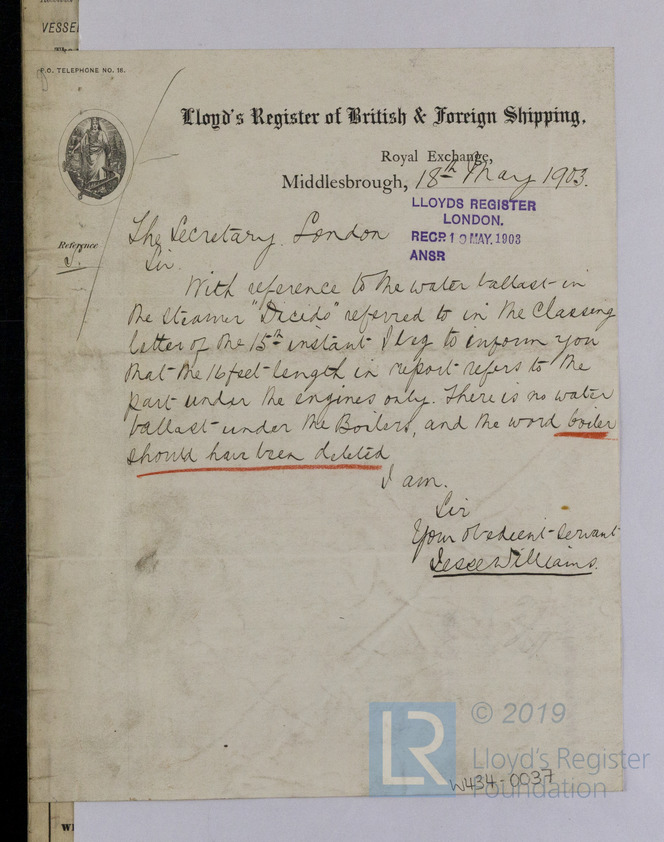 VESSEL
P.O. TELEPHONE NO. 16.
Lloyd's Register of British & Foreign Shipping,
Royal Exchange,
Middlesbrough, 18th May 1903.
LLOYDS REGISTER
LONDON.
RECD. 19 MAY. 1903
ANSR
Reference
The Secretary London
Sir.
With reference to the water ballast in
the steamer "Decido" referred to in the Classing
letter of the 15th instant I beg to inform you
that the 16 feet length in report refers to the
part under the engines only. There is no water
ballast under the Boilers, and the word boiler
should have been deleted
I am.
Sir
Your obedient servant
Jesse Williams.
© 2019
LR
Lloyd's Register
Foundation
W434-0037